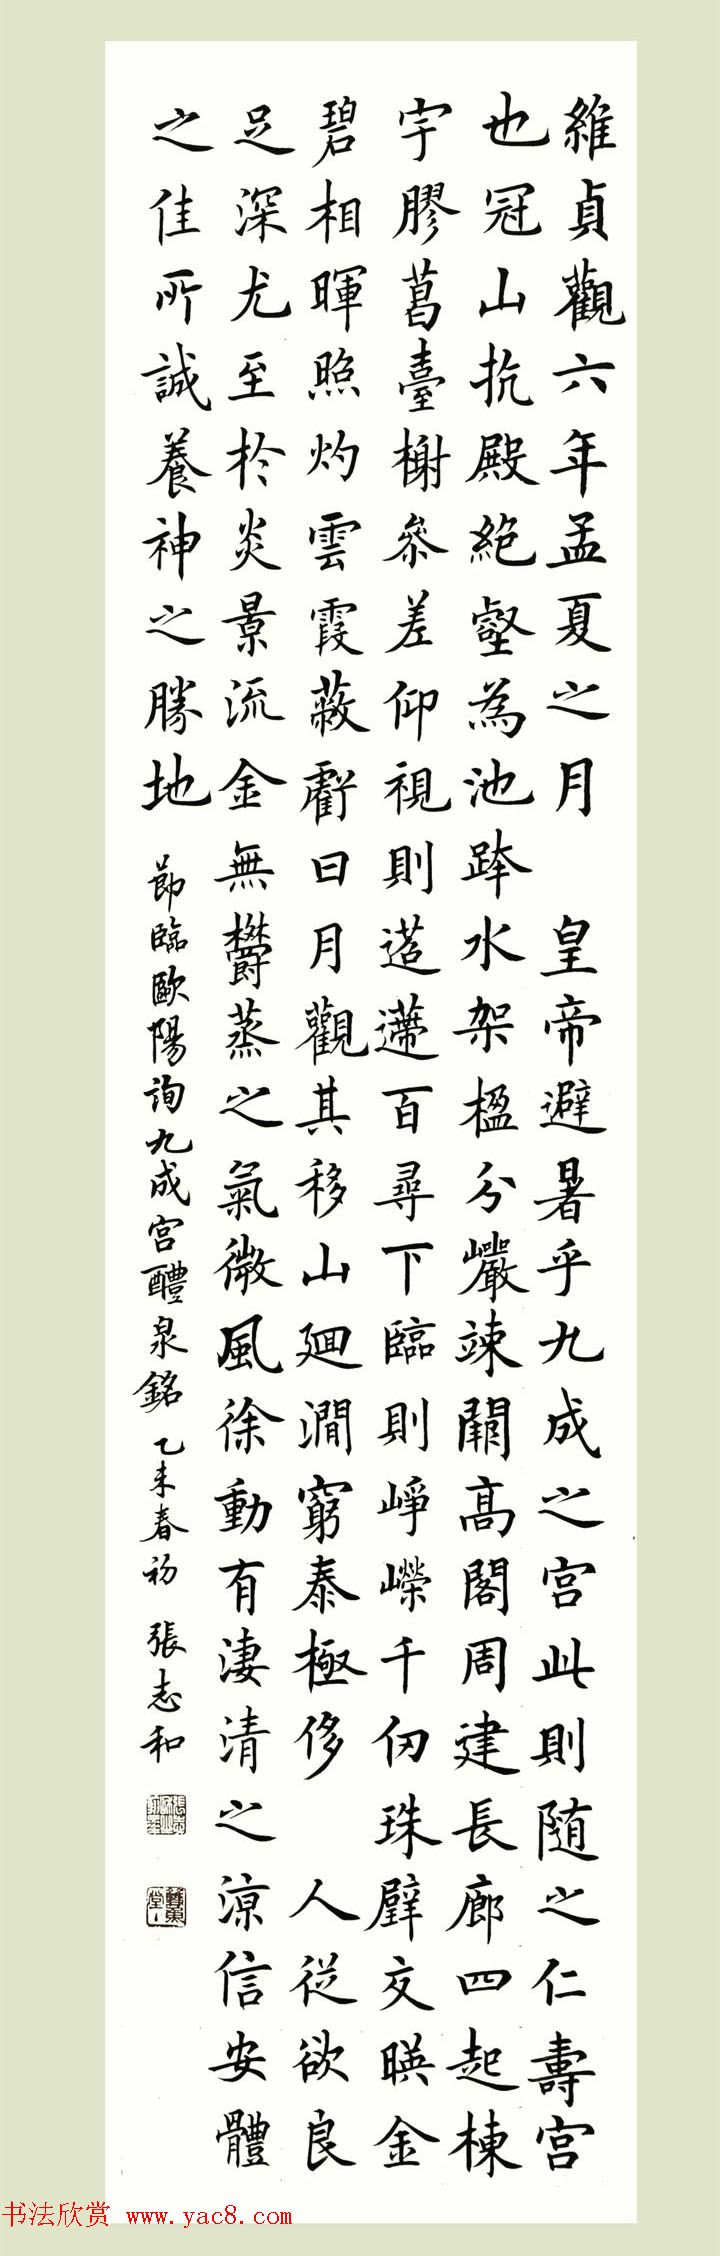 維貞觀六年孟夏之月 皇帝避暑乎九成之宮此則隨之仁壽宮
也冠山抗殿絶壑為池跨水架楹分巖竦闕高閣周建長廊四起棟
宇膠葛臺榭參差仰視則迢遰百尋下臨則崢嶸千仞珠璧交暎金
碧相暉照灼雲霞蔽虧日月觀其移山廻澗窮泰極侈 人從欲良
足深尤至於炎景流金無鬱蒸之氣微風徐動有淒清之涼信安體
之佳所誠養神之勝地
節臨歐陽詢九成宮醴泉銘 乙未春初 張志和
书法欣赏 www.yac8.com